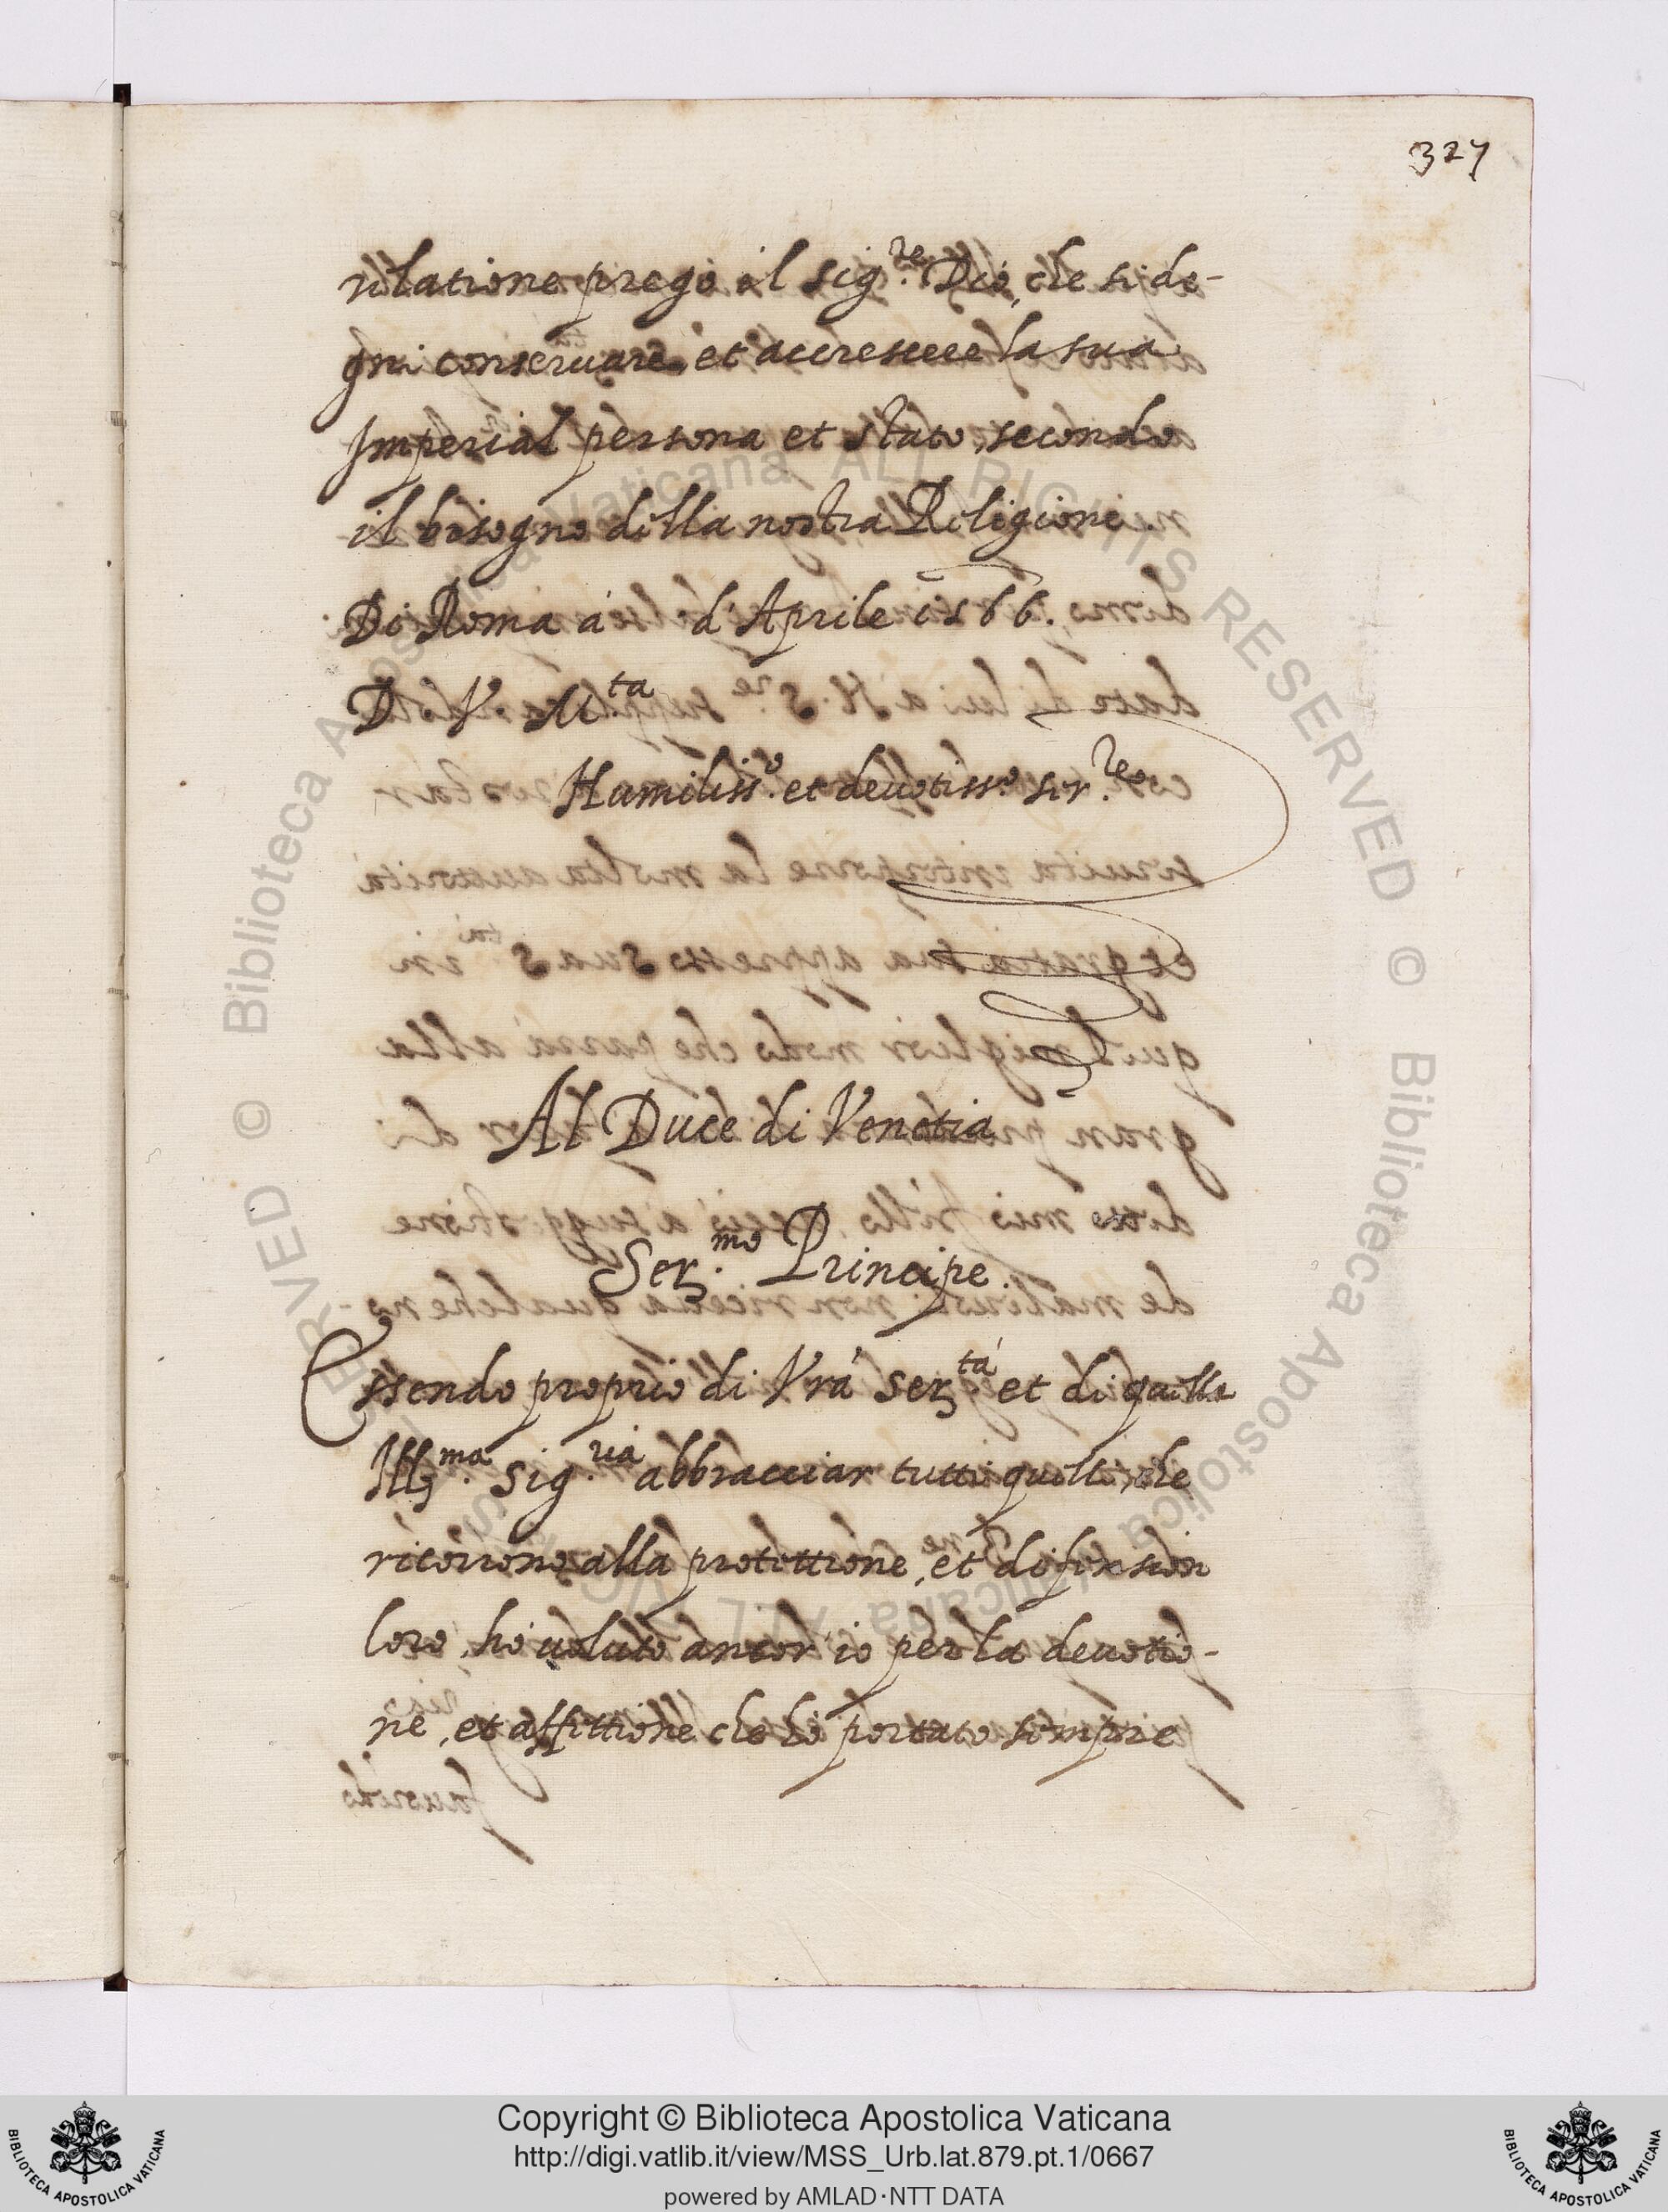 327
relatione prego il sig.re Dio, che si de-
gni conservare, et accrescere la sua
Imperial persona et stato, secondo
il bisogno della nostra Religione.
Di Roma à d'Aprile 1566.
D. V. M.ta
Humiliss.o et devotiss.o ser.re
Al Duce di Venetia
Ser.mo Principe.
Essendo proprio di Vrã Ser.tà et di quella
Ill.ma Sig.ria abbracciar tutti quelli, che
ricorrono alla protettione, et defension
loro, hò voluto ancor' io per la devotio-
ne, et affettione che hò portato sempre
Copyright © Biblioteca Apostolica Vaticana
http://digi.vatlib.it/view/MSS_Urb.lat.879.pt.1/0667
powered by AMLAD·NTT DATA
BIBLIOTECA APOSTOLICA VATICANA
BIBLIOTECA APOSTOLICA VATICANA